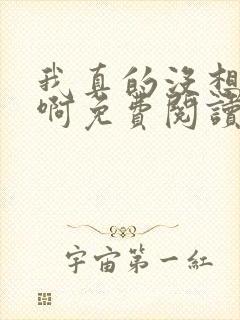 我真的没想
啊免費閱讀
宇宙第一紅